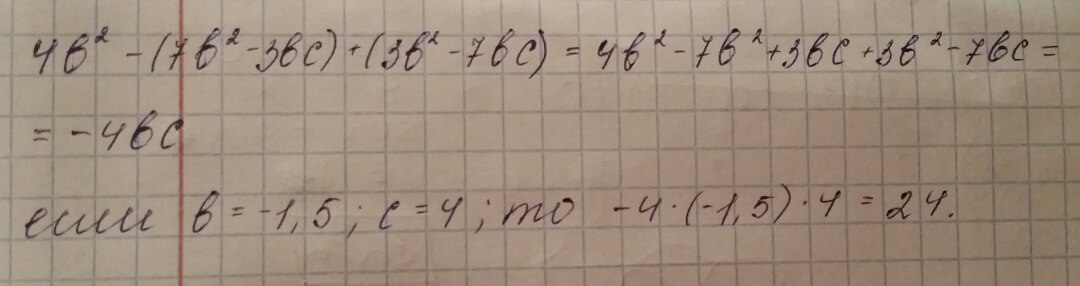 4в² - (7в² - 3вс) + (3в² - 7вс) = 4в² - 7в² + 3вс + 3в² - 7вс =
= - 4вс
если в = -1,5 ; с = 4 ; то -4 · (-1,5) · 4 = 24.